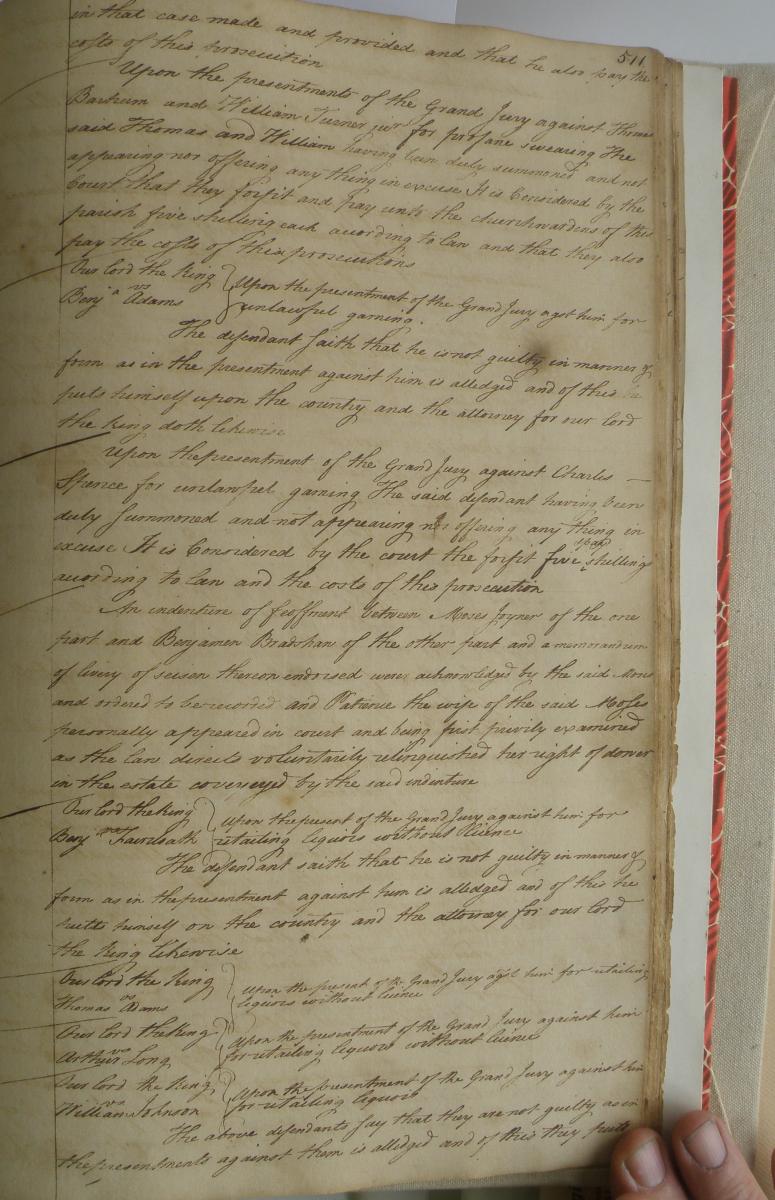 511
in that case made and provided and that he also pay the
costs of this prosecution
Upon the presentments of the Grand Jury against Thomas
Barhum and William Turner jur for profane swearing The
said Thomas and William having been duly summoned and not
appearing nor offering any thing in excuse It is Considered by the
Court that they forfit and pay unto the churchwardens of this
parish five shillings each according to law and that they also
pay the costs of this prosecutions
Our Lord the King
vs
Benja Adams
Upon the presentment of the Grand Jury agst him for
unlawful gaming.
The defendant saith that he is not guilty in manner &
form as in the presentment against him is alledged and of this he
puts himself upon the country and the attorney for our Lord
the King doth likewise
Upon the presentment of the Grand Jury against Charles
Spence for unlawful gaming The said defendant having been
duly summoned and not appearing nor offering any thing in
excuse It is Considered by the court the forfit five shillings
according to law and the costs of this prosecution
An indenture of feoffment between Moses Joyner of the one
part and Benjamen Bradshaw of the other part and a memorandum
of livery of seisen thereon endorsed were acknowledged by the said Moses
and ordered to be recorded and Patience the wife of the said Moses
personally appeared in court and being first privily examined
as the law directs voluntarily relinquished her right of dower
in the estate conveyed by the said indenture
Our Lord the King
vs
Benj
Upon the present of the Grand Jury against him for
retailing liquors without licence
The defendant saith that he is not guilty in manner &
form as in the presentment against him is alledged and of this he
putts himself on the country and the attorney for our Lord
the King likewise
Our Lord the King
vs
Thomas Adams
Upon the present of the Grand Jury agst him for retailing
liquors without licence
Our Lord the King
vs
Arthur Long
Upon the presentment of the Grand Jury against him
for retailing liquors without licence
Our Lord the King
vs
William Johnson
Upon the presentment of the Grand Jury against him
for retailing liquors
The above defendants say that they are not guilty as in
the presentments against them is alledged and of this they putts